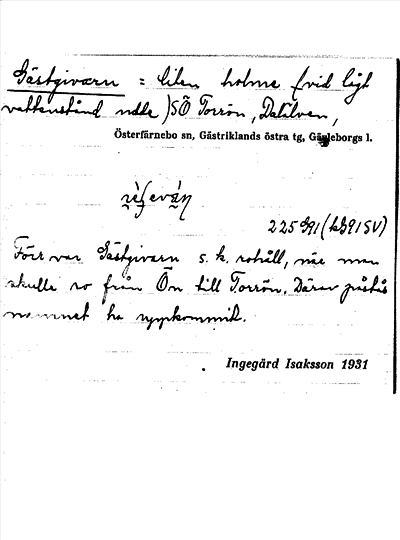 Gästgivarn = liten holme (vid lågt
vattenstånd udde) SÖ Torrön, Dalälven,
Österfärnebo sn, Gästriklands östra tg, Gävleborgs l.
225 S91 (kb91SV)
Förr var Gästgivarn s. k. rohåll, när man
skulle ro från Ön till Torrön. Därav påstås
namnet ha uppkommit.
Ingegärd Isaksson 1931